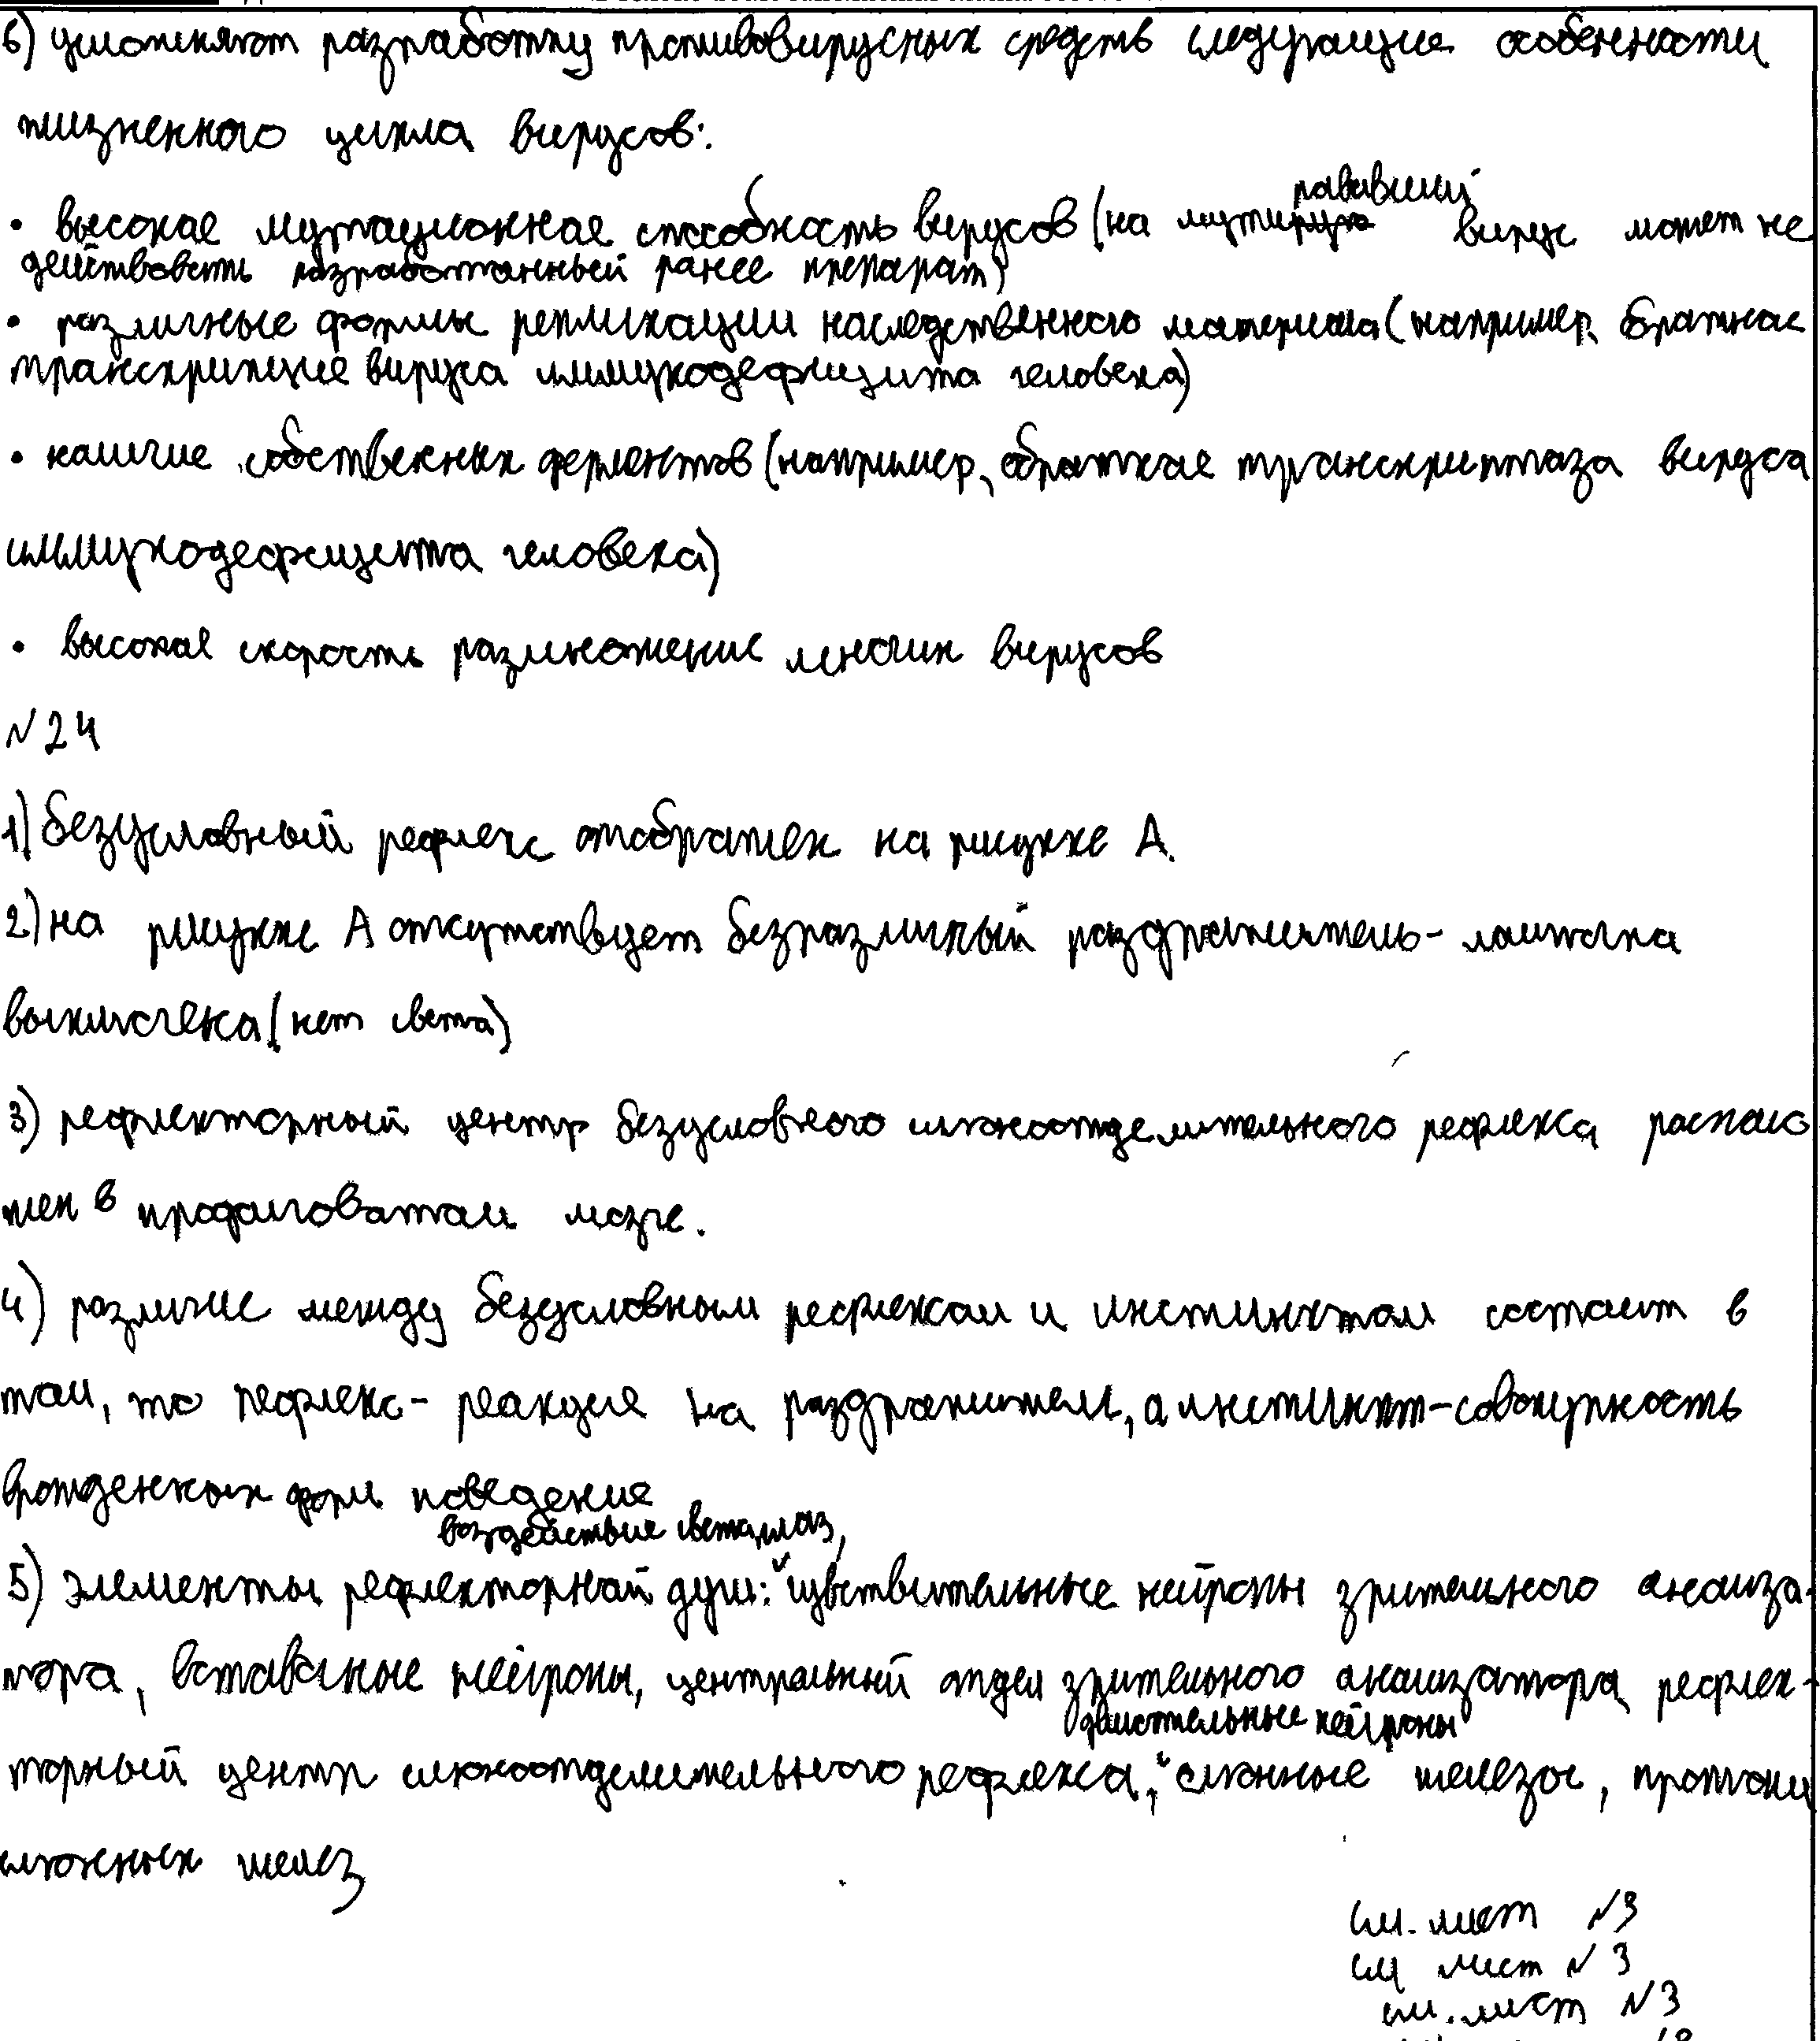 6) усложняют разработку противовирусных средств следующие особенности
жизненного цикла вирусов:
• высокая мутационная способность вирусов (на мутировавший вирус может не
действовать разработанный ранее препарат)
• различные формы репликации наследственного материала (например, братная
транскрипция вируса иммунодефицита человека)
• наличие собственных ферментов (например, обратная транскриптаза вируса
иммунодефицита человека)
• высокая скорость размножения многих вирусов
№24
1) безусловный рефлекс отображен на рисунке А.
2) на рисунке А отсутствует безразличный раздражитель - лампочка
выключена (нет света)
3) рефлекторный центр безусловного слюноотделительного рефлекса располо
жен в продолговатом мозге.
4) различие между безусловным рефлексом и инстинктом состоит в
том, то рефлекс - реакция на раздражитель, а инстинкт - совокупность
врожденных форм поведения
5) элементы рефлекторной дуги: воздействие света, глаз, чувствительные нейроны зрительного анализа-
тора, вставочные нейроны, центральный отдел зрительного анализатора, рефлек-
торный центр слюноотделительного рефлекса, двигательные нейроны, слюнные железы, протоки
слюнных желез
см. лист №3
см лист №3
см. лист №3